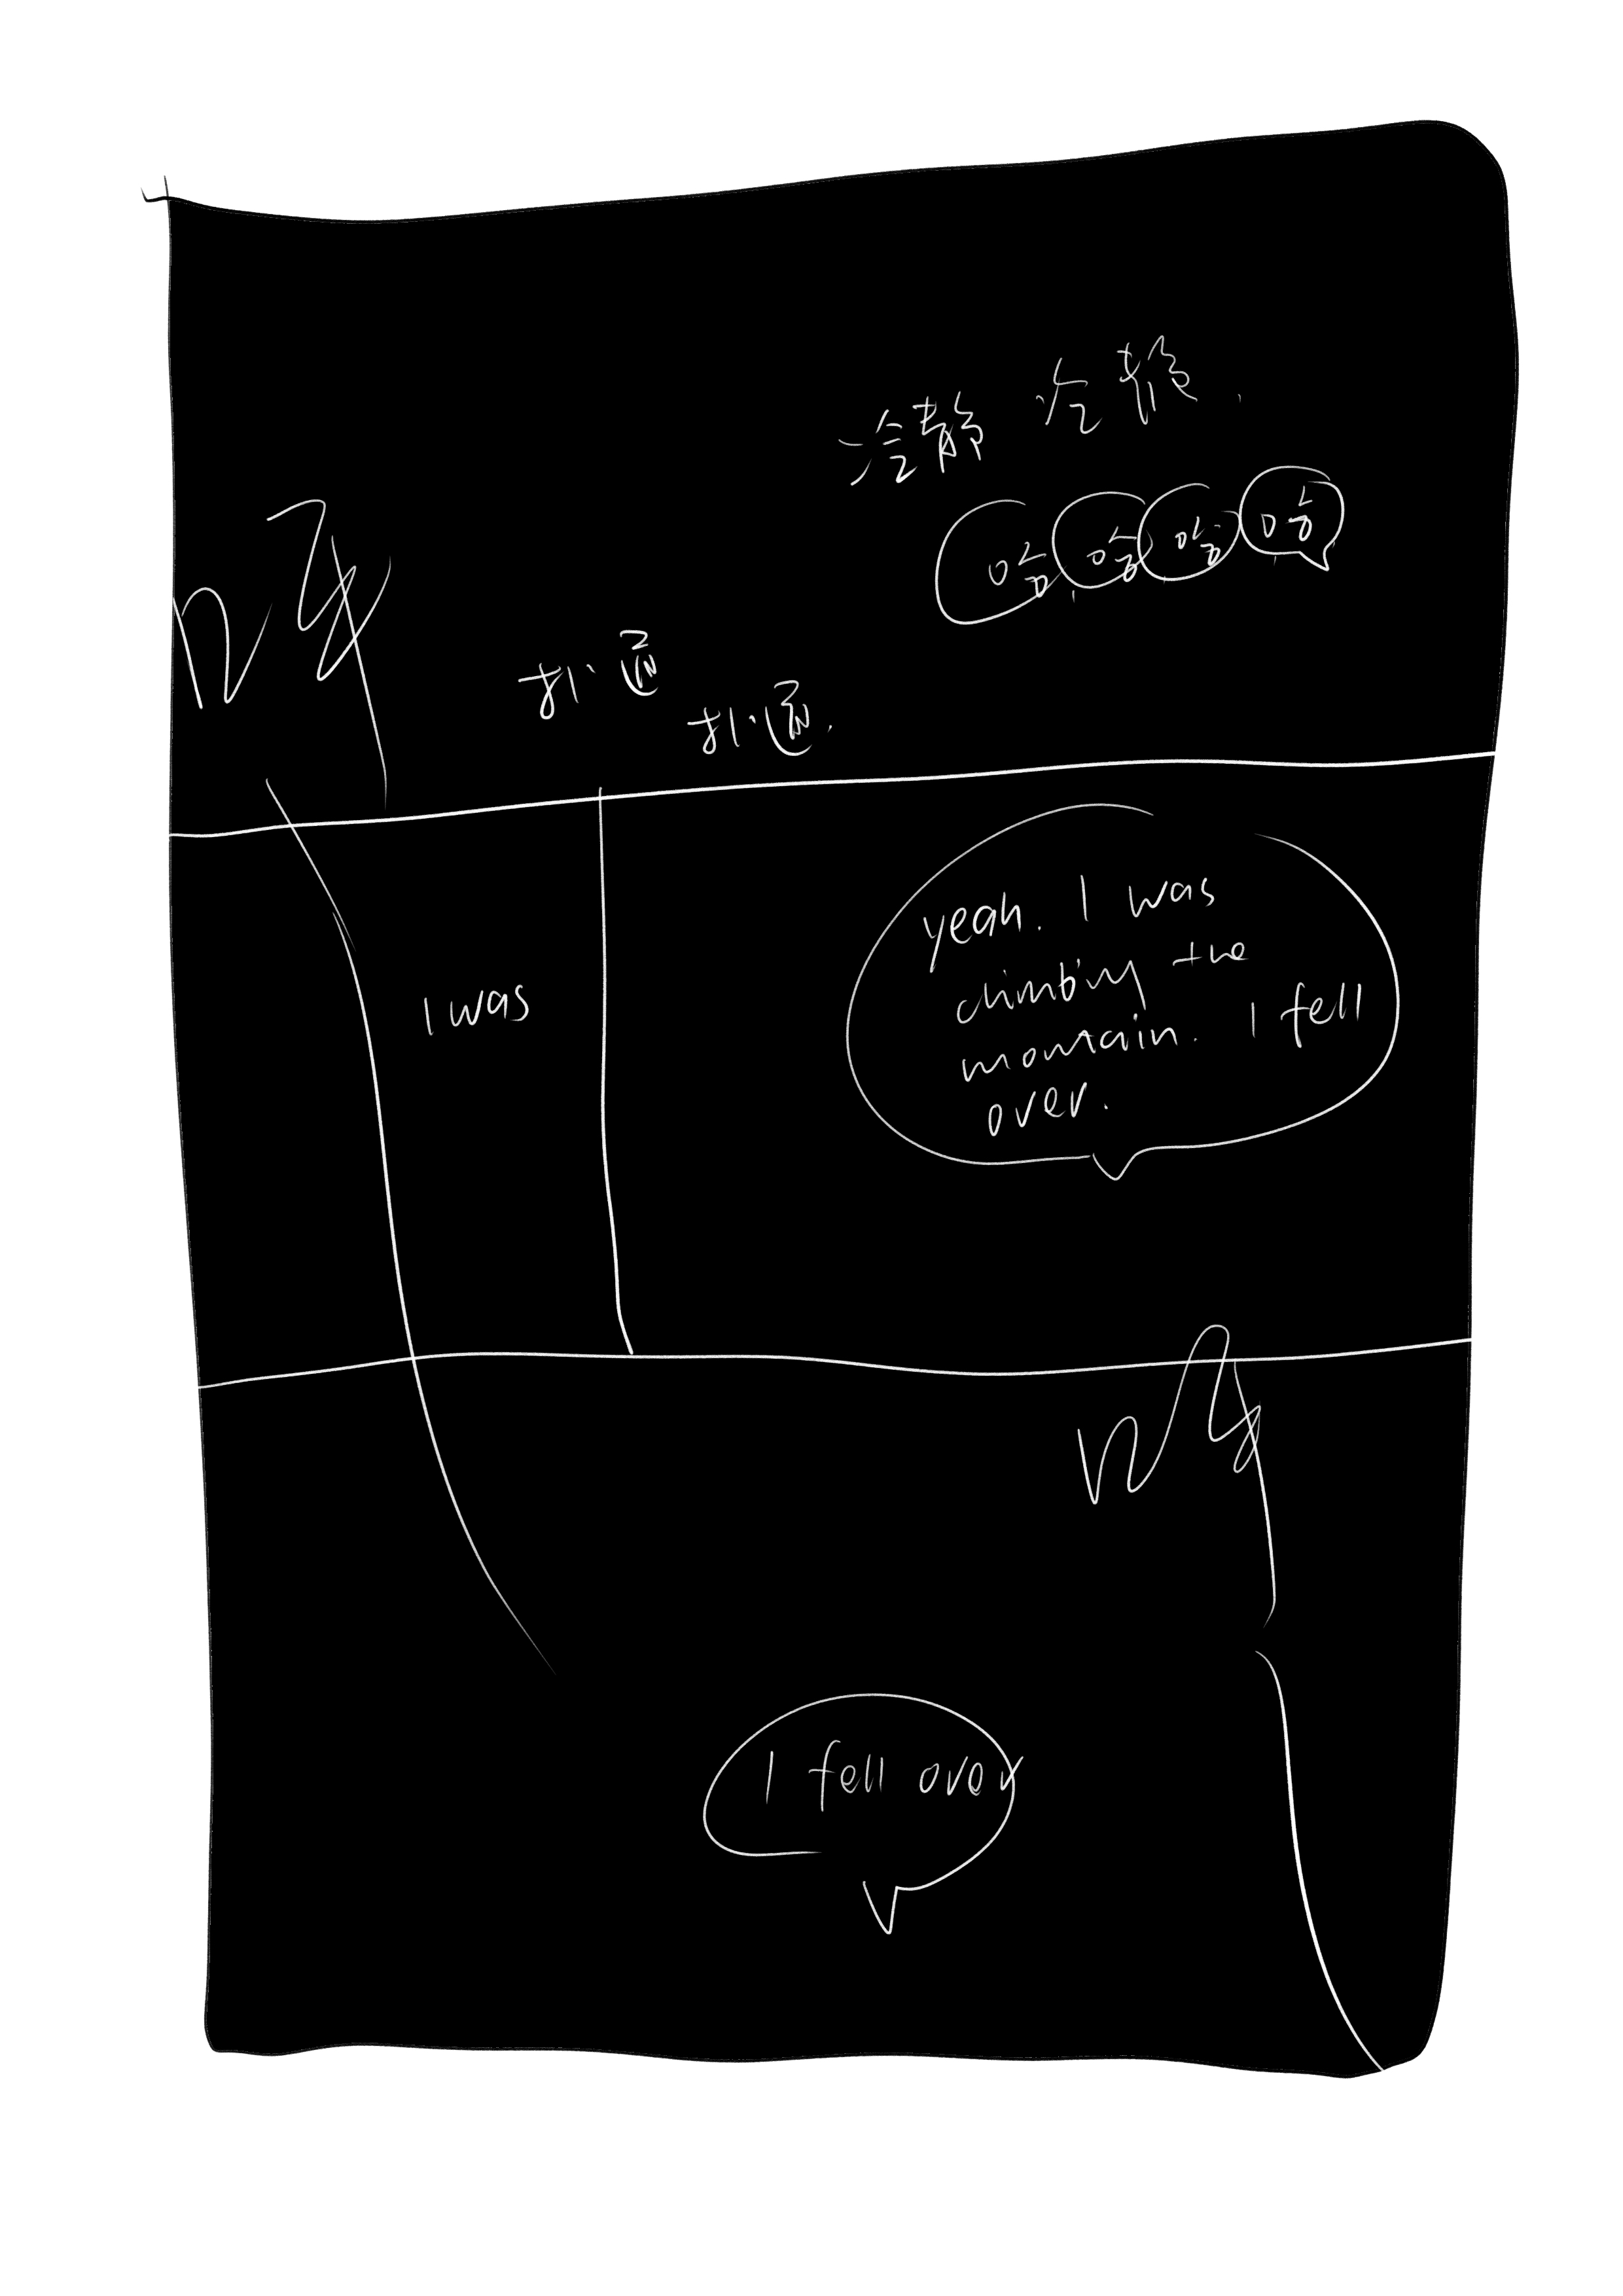 冷静 冷静.
扑通
扑通.
I was
yeah. I was
climbing the
mountain. I fell
over.
I fell over